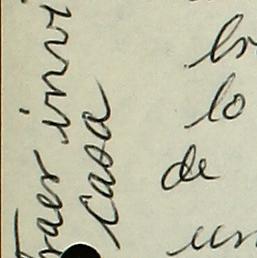 lo
de
un
Traer invi
casa